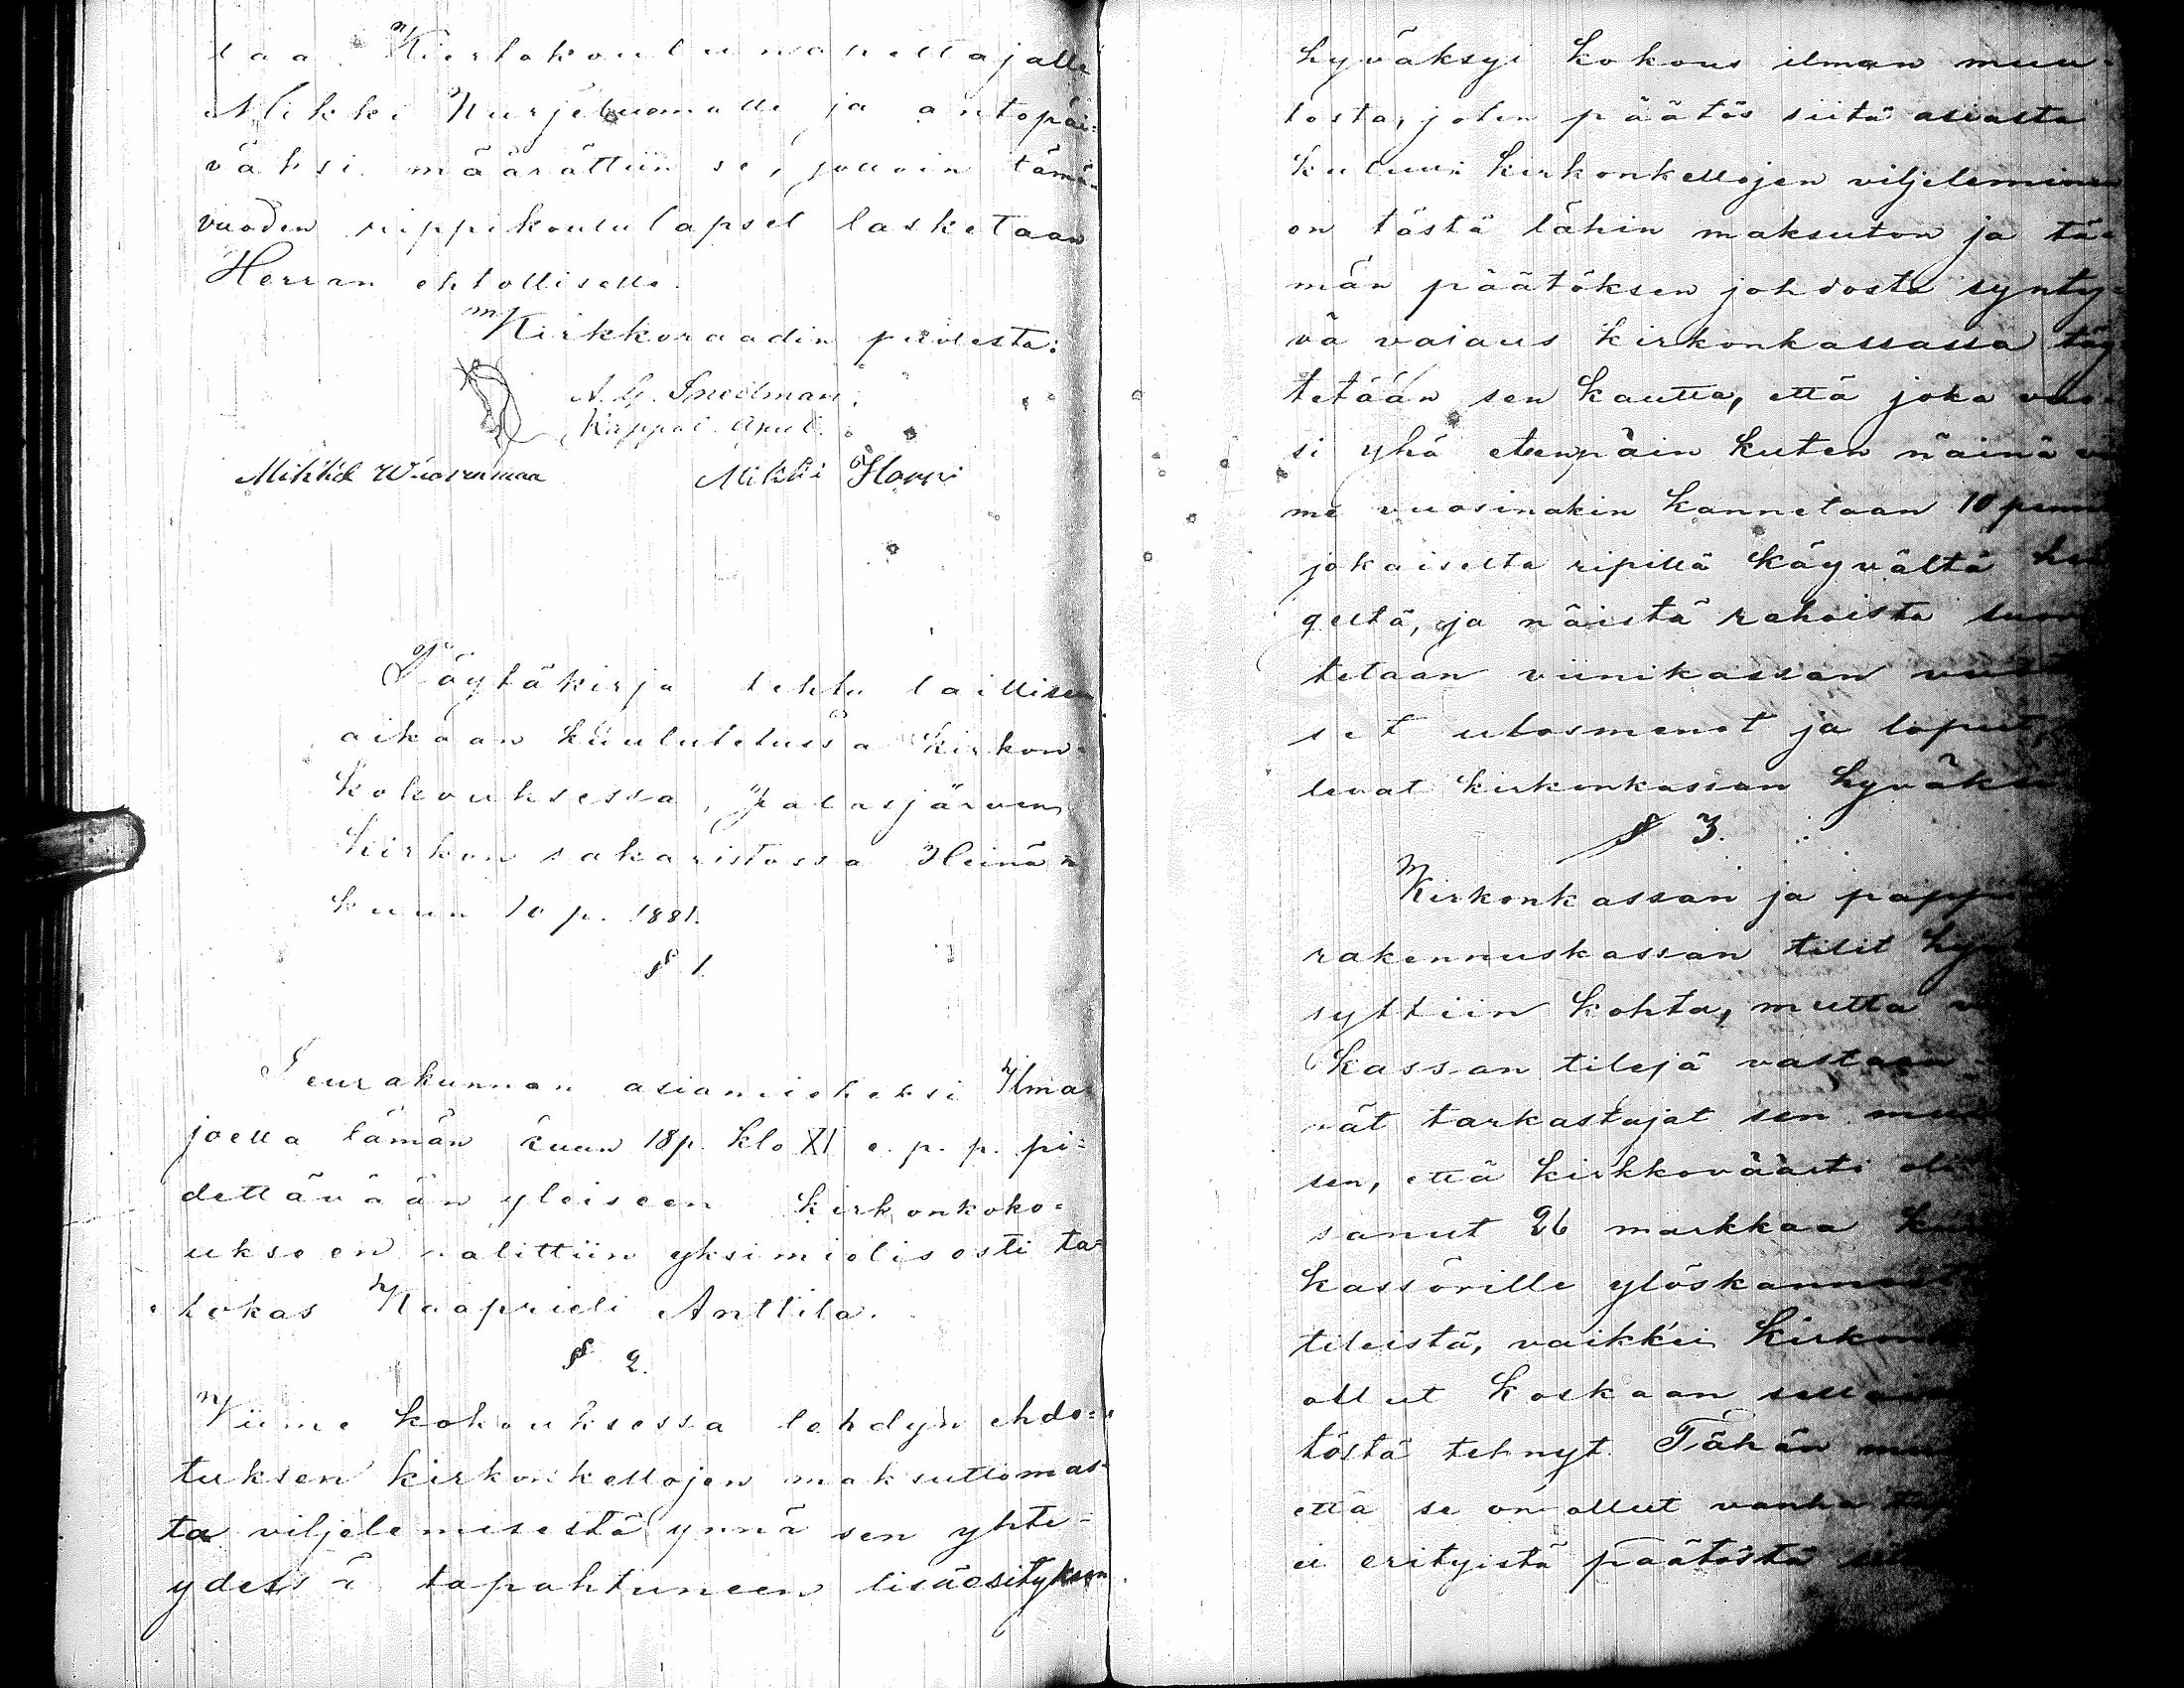 taa Kiertokoulunopettajalle
Mikki Kurjeluomalle ja antopäi=
väksi määrättiin se, jolloin tämän
vuoden rippikoululapset lasketaan
Herran ehtolliselle.
Kirkkoraadin puolesta:
A. G. Snedman.
Kappal. apul.
Mikkel Wuorenmaa Mikki Harri
Pöytäkirja tehty laillisen
aikaan kuulutetussa kirkon
kokouksessa, Jalasjärven
kirkon sakaristossa Heinä=
kuun 10 p. 1881.
§ 1.
Seurakunnan asiamieheksi Ilma=
joella tämän kuun 18p. klo XI e. p. p. pi=
dettävään yleiseen kirkonkoko=
ukseen valittiin yksimielisesti ta=
lokas Kaaprieli Anttila.
§ 2.
Viime kokouksessa tehdyn ehdo=
tuksen kirkonkellojen maksuttomas=
ta viljelemisestä ynnä sen yhte=
ydessä tapahtuneen lisäesityksen
hyväksyi kokous ilman muu=
tosta, joten päätös siitä asiasta
kuluu: kirkonkellojen viljeleminen
on tästä lähin maksuton ja tä=
män päätöksen johdosta synty=
vä vajaus kirkonkassassa täy
tetään sen kautta, että joka vuo=
si yhä eteenpäin kuten näinä vii
me vuosinakin kannetaan 10 penn
jokaiselta ripillä käyvältä hen
geltä, ja näistä rahoista suori
tetaan viinikassan vuot
set ulosmenot ja loput,
levat kirkonkassan hyväksi
§ 3.
Kirkonkassan ja pappi
rakennuskassan tilit hyv
syttiin kohta, mutta v
kassan tilejä vastaan
vät tarkastajat sen muis
sen, että kirkkoväärti oli
sanut 26 markkaa
kassörille ylöskannost
tileistä, vaikk'ei kirkon
ollut koskaan sellai
töstä tehnyt. Tähän
että se on ollut vanha
ei erityistä päätöstä